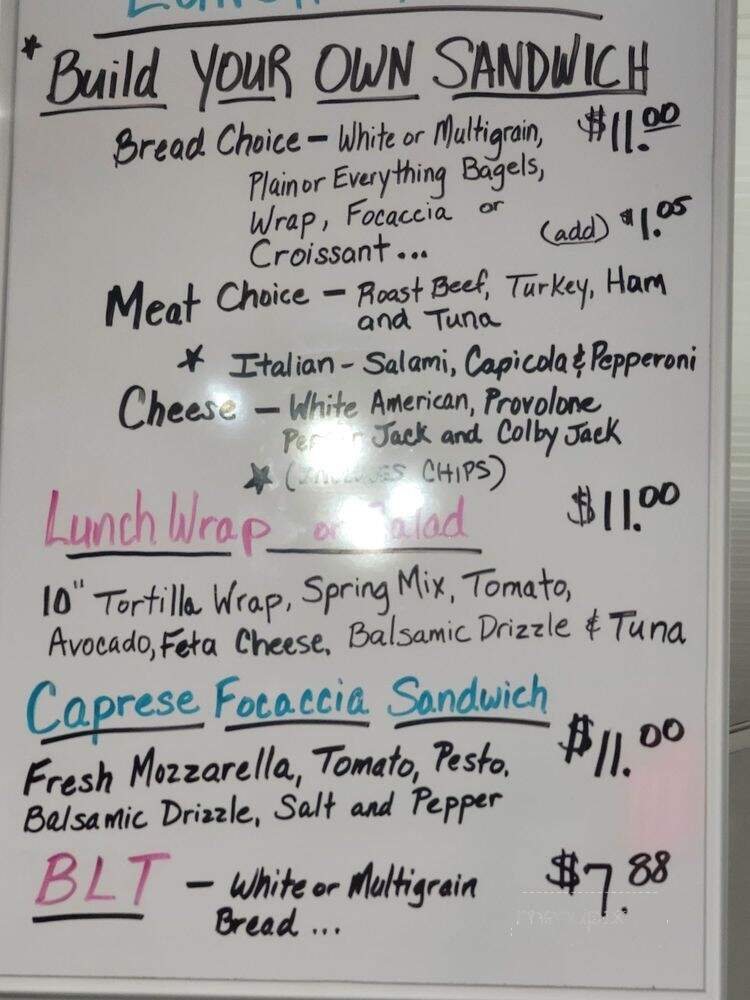 * Build YOUR OWN SANDWICH
Bread Choice - White or Multigrain, $11.00
Plain or Everything Bagels,
Wrap, Focaccia or
Croissant... (add) $1.05
Meat Choice - Roast Beef, Turkey, Ham
and Tuna
* Italian - Salami, Capicola & Pepperoni
Cheese - White American, Provolone
Pepper Jack and Colby Jack
* (INCLUDES CHIPS)
Lunch Wrap or Salad $11.00
10" Tortilla Wrap, Spring Mix, Tomato,
Avocado, Feta Cheese, Balsamic Drizzle & Tuna
Caprese Focaccia Sandwich
$11.00
Fresh Mozzarella, Tomato, Pesto,
Balsamic Drizzle, Salt and Pepper
BLT - White or Multigrain $7.88
Bread ...